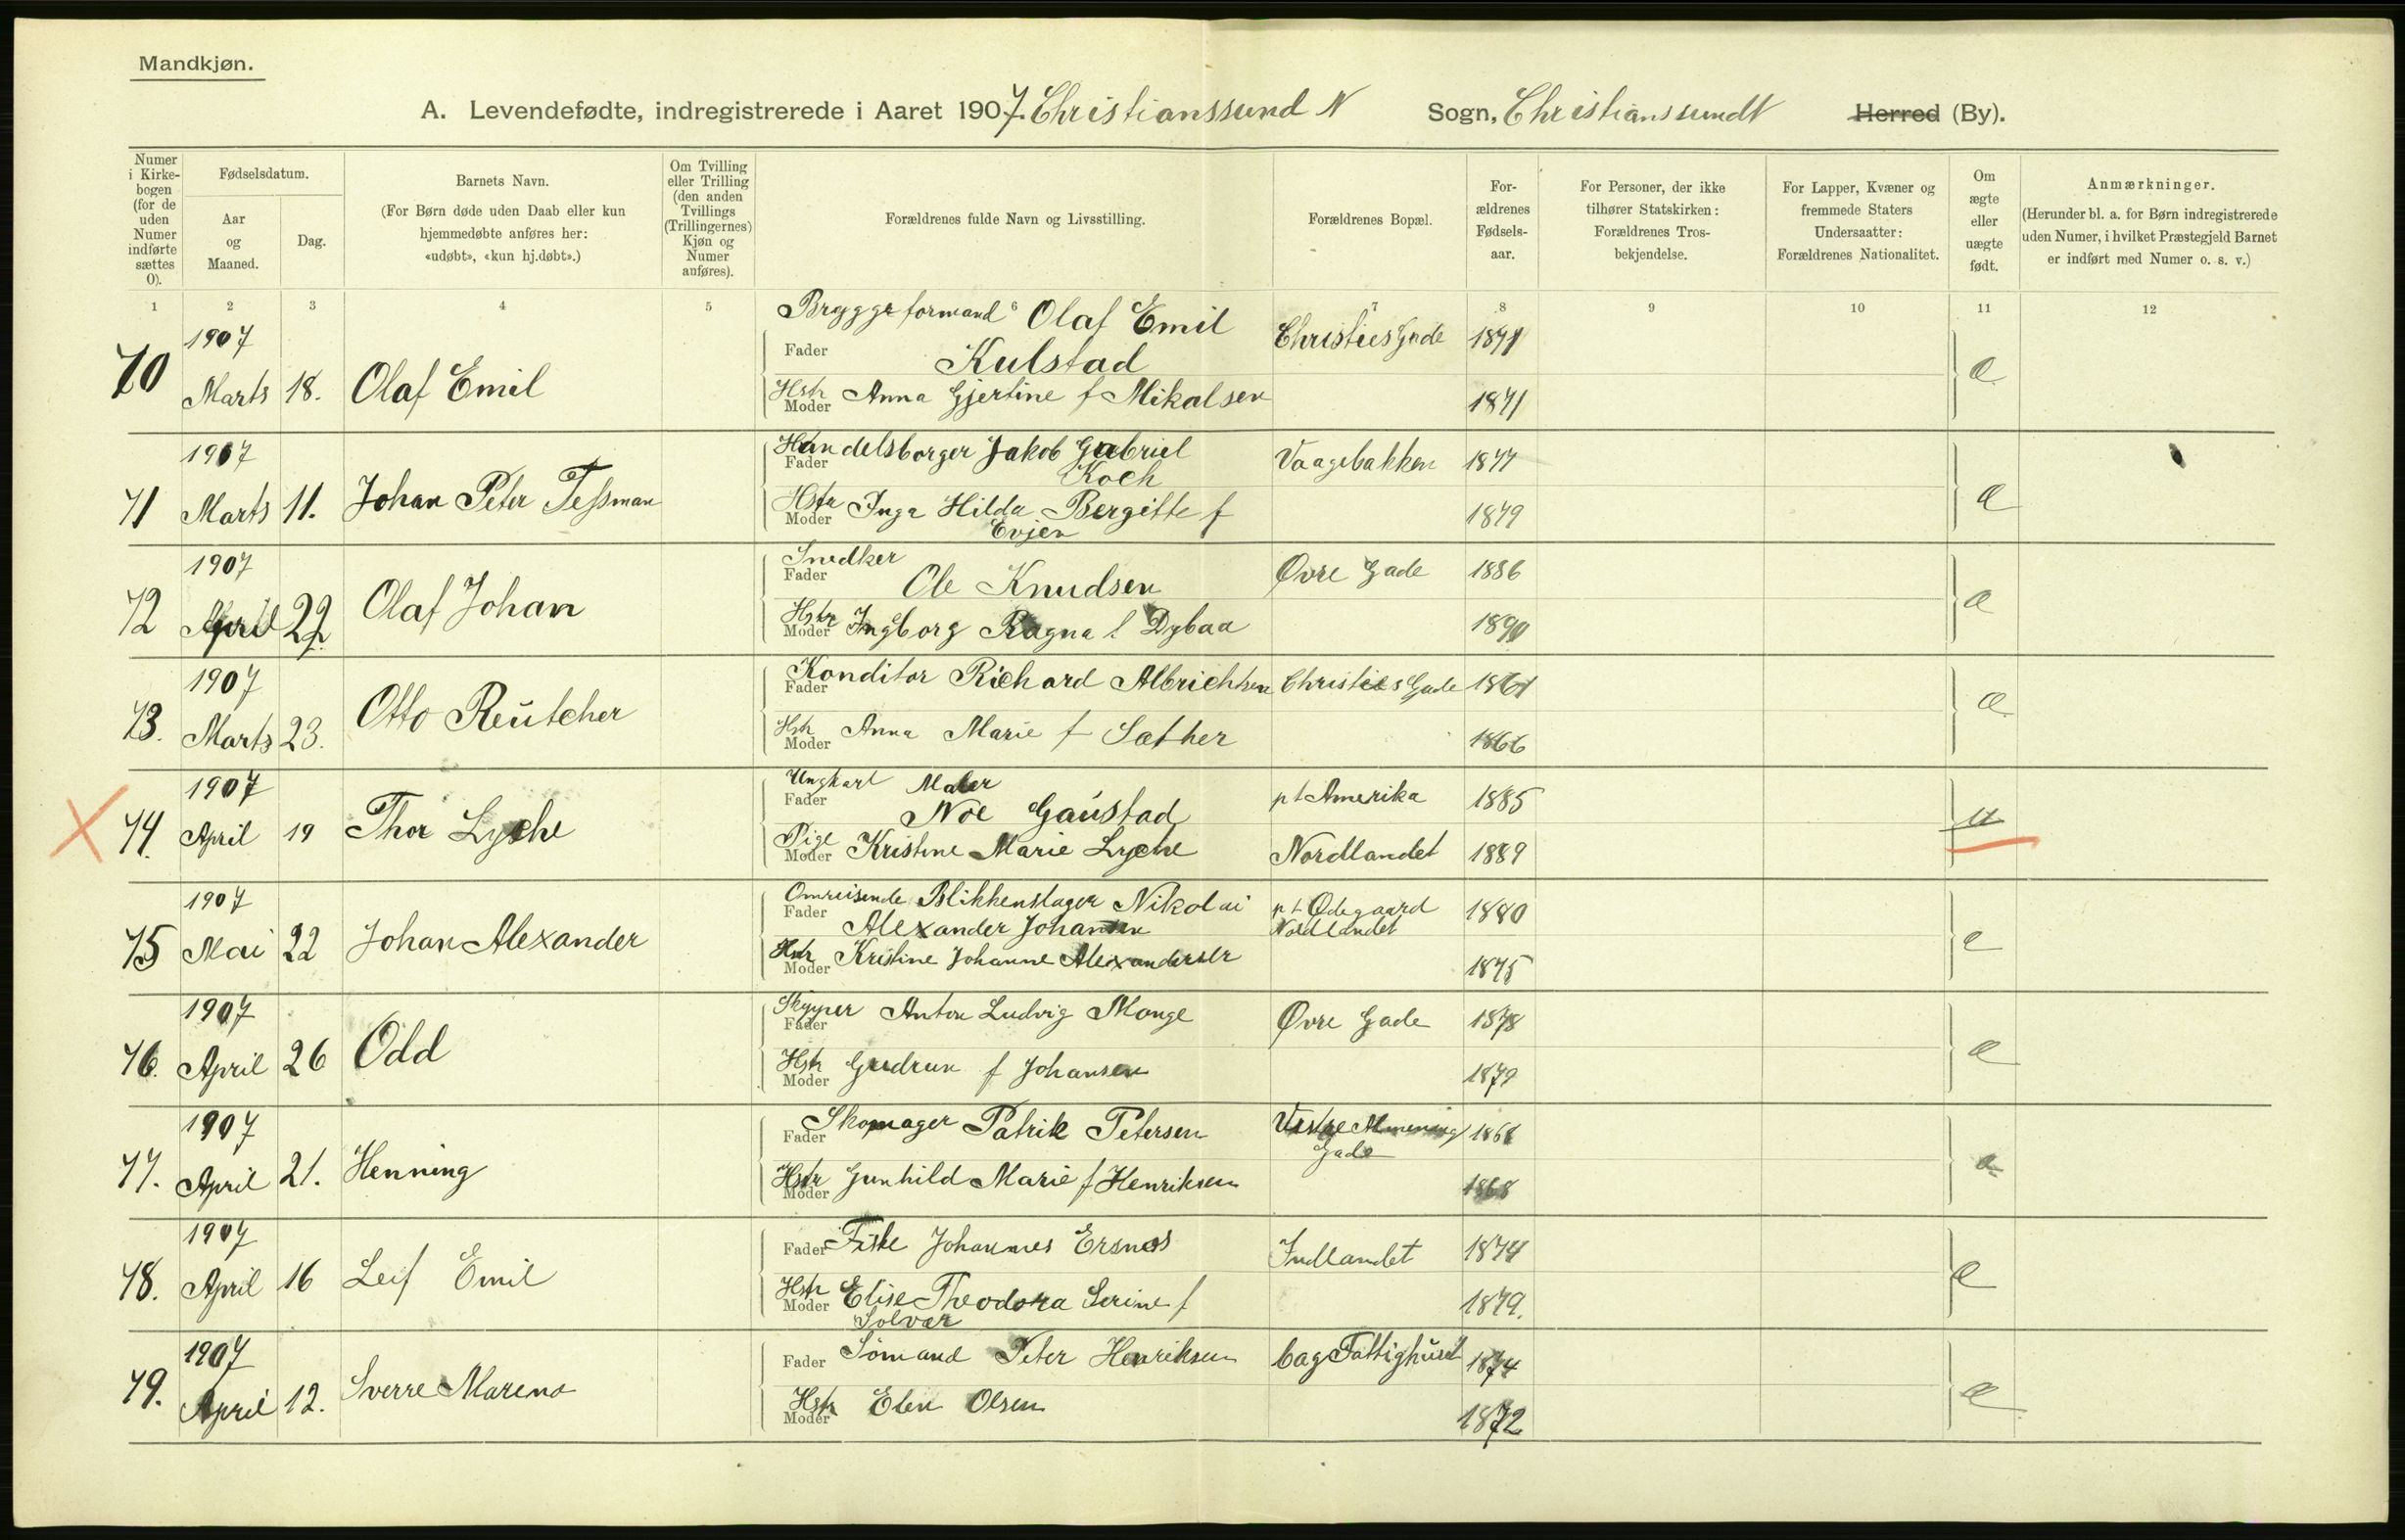 Mandkjøn.
A. Levendefødte, indregistrerede i Aaret 1907. Christianssund N Sogn, Christianssundt Herred (By).
Numer i Kirkebogen (for de uden Numer indførte sættes 0).
Fødselsdatum.
Aar og Maaned.
Dag.
Barnets Navn.
(For Børn døde uden Daab eller kun hjemmedøbte anføres her: «udøbt», «kun hj.døbt».)
Om Tvilling eller Trilling (den anden Tvillings (Trillingernes) Kjøn og Numer anføres).
Forældrenes fulde Navn og Livsstilling.
Forældrenes Bopæl.
For-ældrenes Fødsels-aar.
For Personer, der ikke tilhører Statskirken: Forældrenes Tros-bekjendelse.
For Lapper, Kvæner og fremmede Staters Undersaatter: Forældrenes Nationalitet.
Om ægte eller uægte født.
Anmærkninger.
(Herunder bl. a. for Børn indregistrerede uden Numer, i hvilket Præstegjeld Barnet er indført med Numer o. s. v.)
1 2 3 4 5 6 7 8 9 10 11 12
1907 Bryggeformand Olaf Emil Christies Gade 1871
Fader Kulstad
70 Marts 18. Olaf Emil
Hstr Moder Anna Gjertine f Mikalsen 1871 æ
1907 Handelsborger Jakob Gabriel Vaagebakken 1877
Fader Koch
71 Marts 11. Johan Peter Tessman
Hstr Moder Inga Hilda Bergitte f 1879 æ
Evjen
1907 Snedker Øvre Gade 1886
Fader Ole Knudsen
72 April 22. Olaf Johan
Hstr Moder Ingborg Ragna f Dybaa 1890 æ
1907 Fader Konditor Richard Albrichtsen Christies Gade 1861
73. Marts 23. Otto Reutcher
Hstr Moder Anna Marie f Sæther 1866 æ
1907 Ungkarl Maler pt Amerika 1885
Fader Noe Gaustad
74. April 19 Thor Lyche
Pige Moder Kristine Marie Lyche Nordlandet 1889 u
1907 Omreisende Blikkenslager Nikolai pt Ødegaard 1880
Fader Alexander Johansen Nordlandet
75 Mai 22 Johan Alexander
Hstr Moder Kristine Johanne Alexandersen 1875 æ
1907 Skipper Fader Anton Ludvig Monge Øvre Gade 1878
76. April 26 Odd
Hstr Moder Gudrun f Johansen 1879 æ
1907 Fader Skomager Patrik Petersen Vestre Almening 1868
Gade
77. April 21. Henning
Hstr Moder Gunhild Marie f Henriksen 1868 æ
1907 Fader Fiske Johannes Ersnes Indlandet 1874
78. April 16 Leif Emil
Hstr Moder Elise Theodora Serine f 1879. æ
Solvær
1907 Fader Sømand Peter Henriksen bag Fattighuset 1874
79. April 12. Sverre Mareno
Hstr Moder Elen Olsen 1872 æ